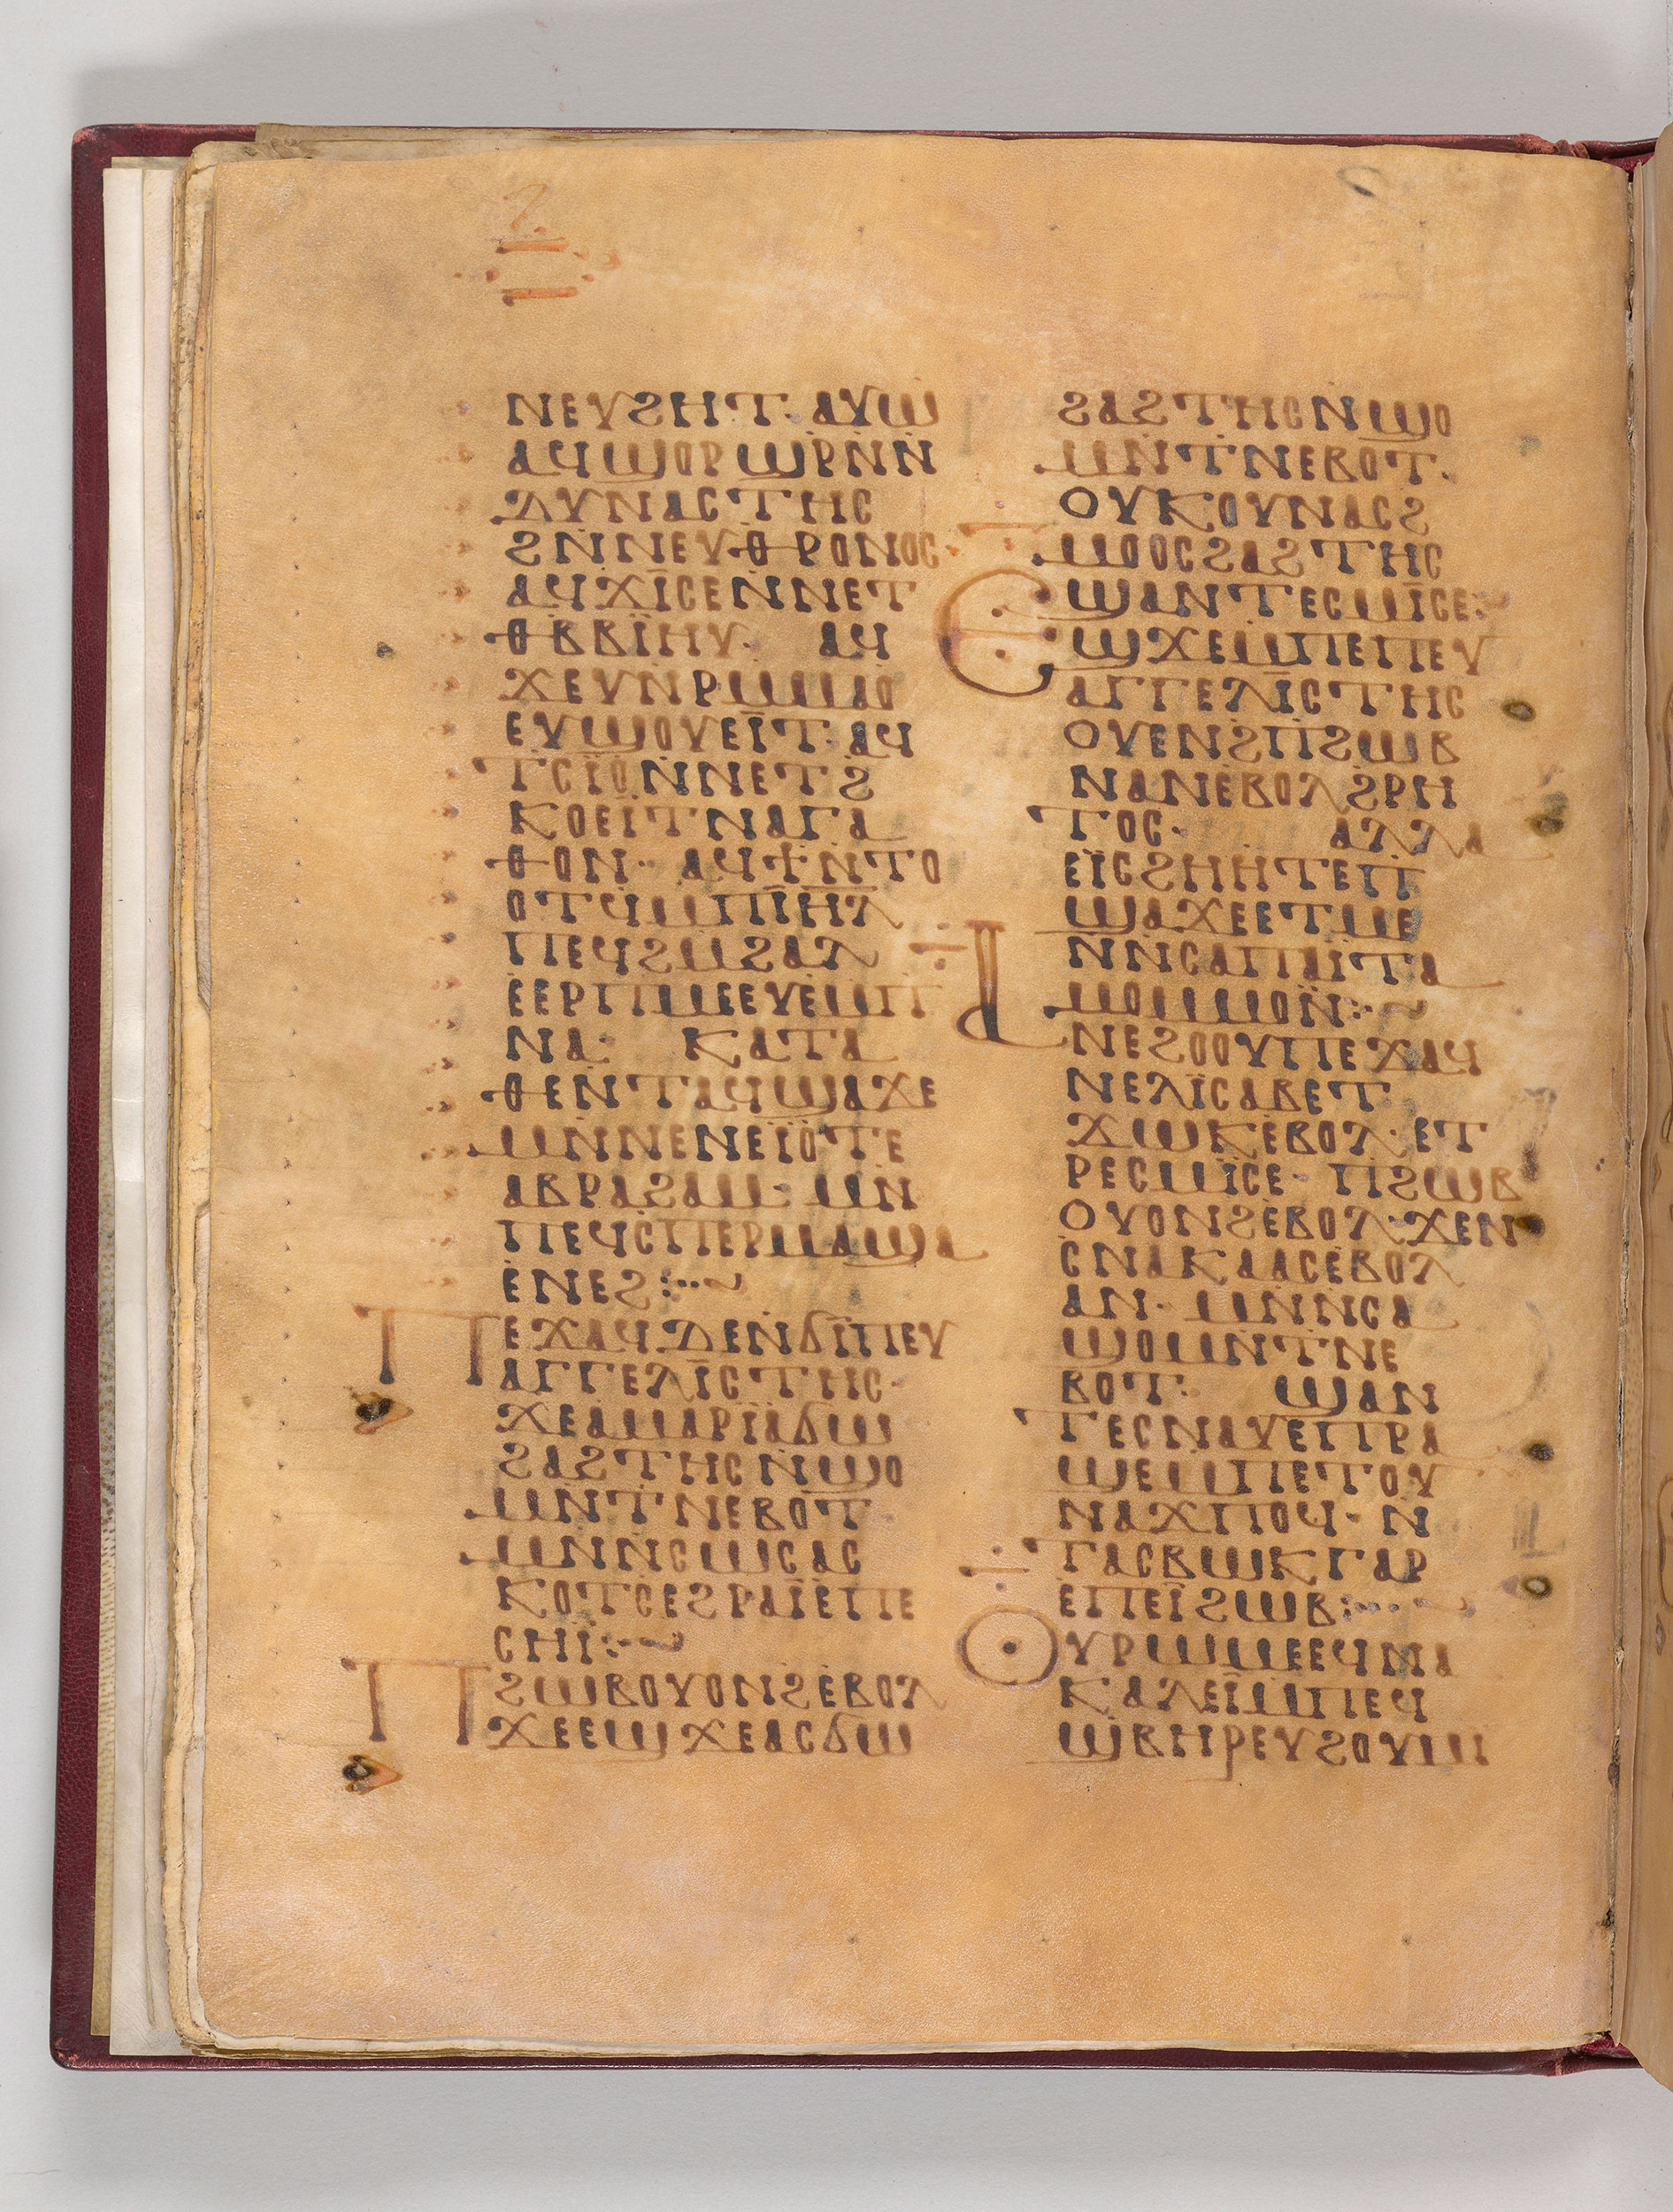 ⲛⲉⲩϩⲏⲧ· ⲁⲩⲱ
ⲁϥϣⲟⲣϣⲣ̄ⲛ̄ⲛ̄
ⲇⲩⲛⲁⲥⲧⲏⲥ
ϩⲛ̄ⲛⲉⲩⲑⲣⲟⲛⲟⲥ·
ⲁϥϫⲓ̈ⲥⲉⲛ̄ⲛⲉⲧ
ⲑⲃ̄ⲃⲓ̈ⲏⲩ· ⲁϥ
ϫⲉⲩⲛ̄ⲣⲙ̄ⲙⲁⲟ
ⲉⲩϣⲟⲩⲉⲓ̈ⲧ· ⲁϥ
ⲧⲥⲓ̈ⲟ̀ⲛ̄ⲛⲉⲧϩ
ⲕⲟⲉⲓ̈ⲧⲛ̄ⲁⲅⲁ
ⲑⲟⲛ· ⲁϥϯⲛ̄ⲧⲟ
ⲟⲧϥ̄ⲙ̄ⲡⲓ̄ⲏ̄ⲗ̄
ⲡⲉϥϩⲙ̄ϩⲁⲗ
ⲉ̀ⲉⲣⲡⲙⲉⲉⲩⲉ̀ⲙ̄ⲡ
ⲛⲁ· ⲕⲁⲧⲁ
ⲑⲉⲛ̄ⲧⲁϥϣⲁϫⲉ
ⲙⲛ̄ⲛⲉⲛⲉⲓ̈ⲟ̀ⲧⲉ
ⲁⲃⲣⲁϩⲁⲙ· ⲙⲛ̄
ⲡⲉϥⲥⲡⲉⲣⲙⲁϣⲁ
ⲉ̀ⲛⲉϩ:··~
ⲡⲉϫⲁϥⲇⲉⲛ̄ϭⲓ̈ⲡⲉⲩ
ⲁⲅⲅⲉⲗⲓ̈ⲥⲧⲏⲥ·
ϫⲉⲁⲙⲁⲣⲓ̈ⲁϭⲱ
ϩⲁϩⲧⲏⲥⲛ̄ϣⲟ
ⲙⲛ̄ⲧⲛⲉⲃⲟⲧ
ⲙⲛ̄ⲛ̄ⲥⲱⲥⲁⲥ
ⲕⲟⲧⲥ̄ⲉϩⲣⲁⲓ̈ⲉ̀ⲡⲉ
ⲥⲏⲓ̈:·~
ⲡϩⲱⲃⲟⲩⲟⲛϩⲉ̀ⲃⲟⲗ
ϫⲉⲉϣϫⲉⲁⲥϭⲱ
ϩⲁϩⲧⲏⲥⲛ̄ϣⲟ
ⲙⲛ̄ⲧⲛⲉⲃⲟⲧ·
ⲟⲩⲕⲟⲩⲛⲁⲥϩ
ⲙⲟⲟⲥϩⲁϩⲧⲏⲥ
ϣⲁⲛⲧⲉⲥⲙⲓ̈ⲥⲉ·
ⲉϣϫⲉⲙ̄ⲡⲉⲡⲉⲩ
ⲁⲅⲅⲉⲗⲓ̈ⲥⲧⲏⲥ
ⲟⲩⲉⲛϩⲡϩⲱⲃ
ⲛⲁⲛⲉ̀ⲃⲟⲗϩ̄ⲣⲏ
ⲧⲟⲥ· ⲁⲗⲗⲁ
ⲉⲓ̈ⲥϩⲏⲏ̀ⲧⲉⲡ
ϣⲁϫⲉⲉⲧⲙⲉ
ⲛ̄ⲛ̄ⲥⲁⲡⲁⲓ̈ⲧⲁ
ⲙⲟⲙ̄ⲙⲟⲛ̈:·~
ⲁⲛⲉϩⲟⲟⲩⲡⲉϫⲁϥ
ⲛⲉⲗⲓ̈ⲥⲁⲃⲉⲧ
ϫⲱⲕⲉ̀ⲃⲟⲗ· ⲉⲧ
ⲣⲉⲥⲙⲓ̈ⲥⲉ· ⲡⲓ̈ϩⲱⲃ
ⲟⲩⲟⲛϩⲉ̀ⲃⲟⲗ· ϫⲉⲛ
ⲥ̄ⲛⲁⲕⲁⲁⲥⲉ̀ⲃⲟⲗ
ⲁⲛ· ⲙⲛ̄ⲛ̄ⲥⲁ
ϣⲟⲙⲛ̄ⲧⲛⲉ
ⲃⲟⲧ· ϣⲁⲛ
ⲧⲉⲥⲛⲁⲩⲉⲡⲣⲁ
ϣⲉⲙ̄ⲡⲉⲧⲟⲩ
ⲛⲁϫⲡⲟϥ· ⲛ̄
ⲧⲁⲥⲃⲱⲕⲅⲁⲣ
ⲉ̀ⲡⲉⲓ̈ϩⲱⲃ:··~
ⲟⲩⲣⲱⲙⲉⲉϥⲙⲁ
ⲕⲁⲗⲉⲓ̈ⲙ̄ⲡⲉϥ
ϣⲃⲏⲣⲉⲩϩⲟⲩⲙ